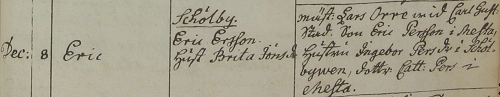 Dec: 8 Eric
Schölby.
Eric Ersson.
Hust Brita Jönsd.
müst: Lars Orre inid Carl Gust.
Stad. Son Eric Persson i Mesta,
Hustru Ingebor Persdr i Schöl-
bywen, dottr. Catt. Pers i
Mesta.